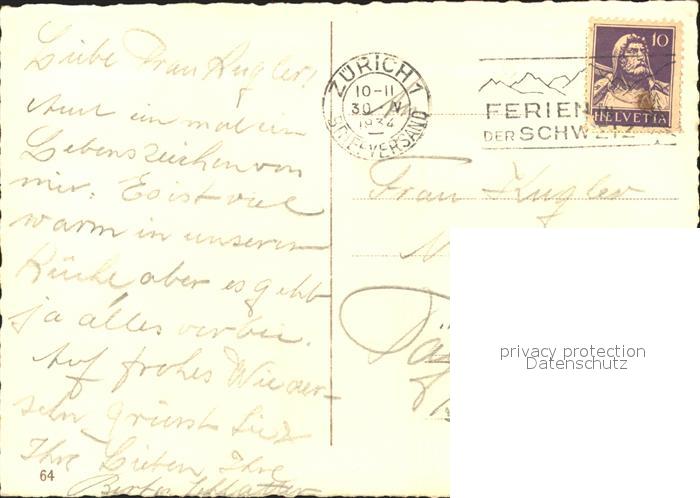 Liebe Frau Kugler!
Auch ein mal ein
Lebenszeichen von
mir. Es ist viel
warm in unserer
Küche aber es geht
ja alles vorbei.
Auf frohes Wieder-
sehn grüsst Sie
Ihre Lieben, Ihre
64
ZÜRICH 1
10-11
30. IV.
1934
BRIEFVERSAND
FERIEN IN
DER SCHWEIZ
10
HELVETIA
Frau Kugler
privacy protection
Datenschutz